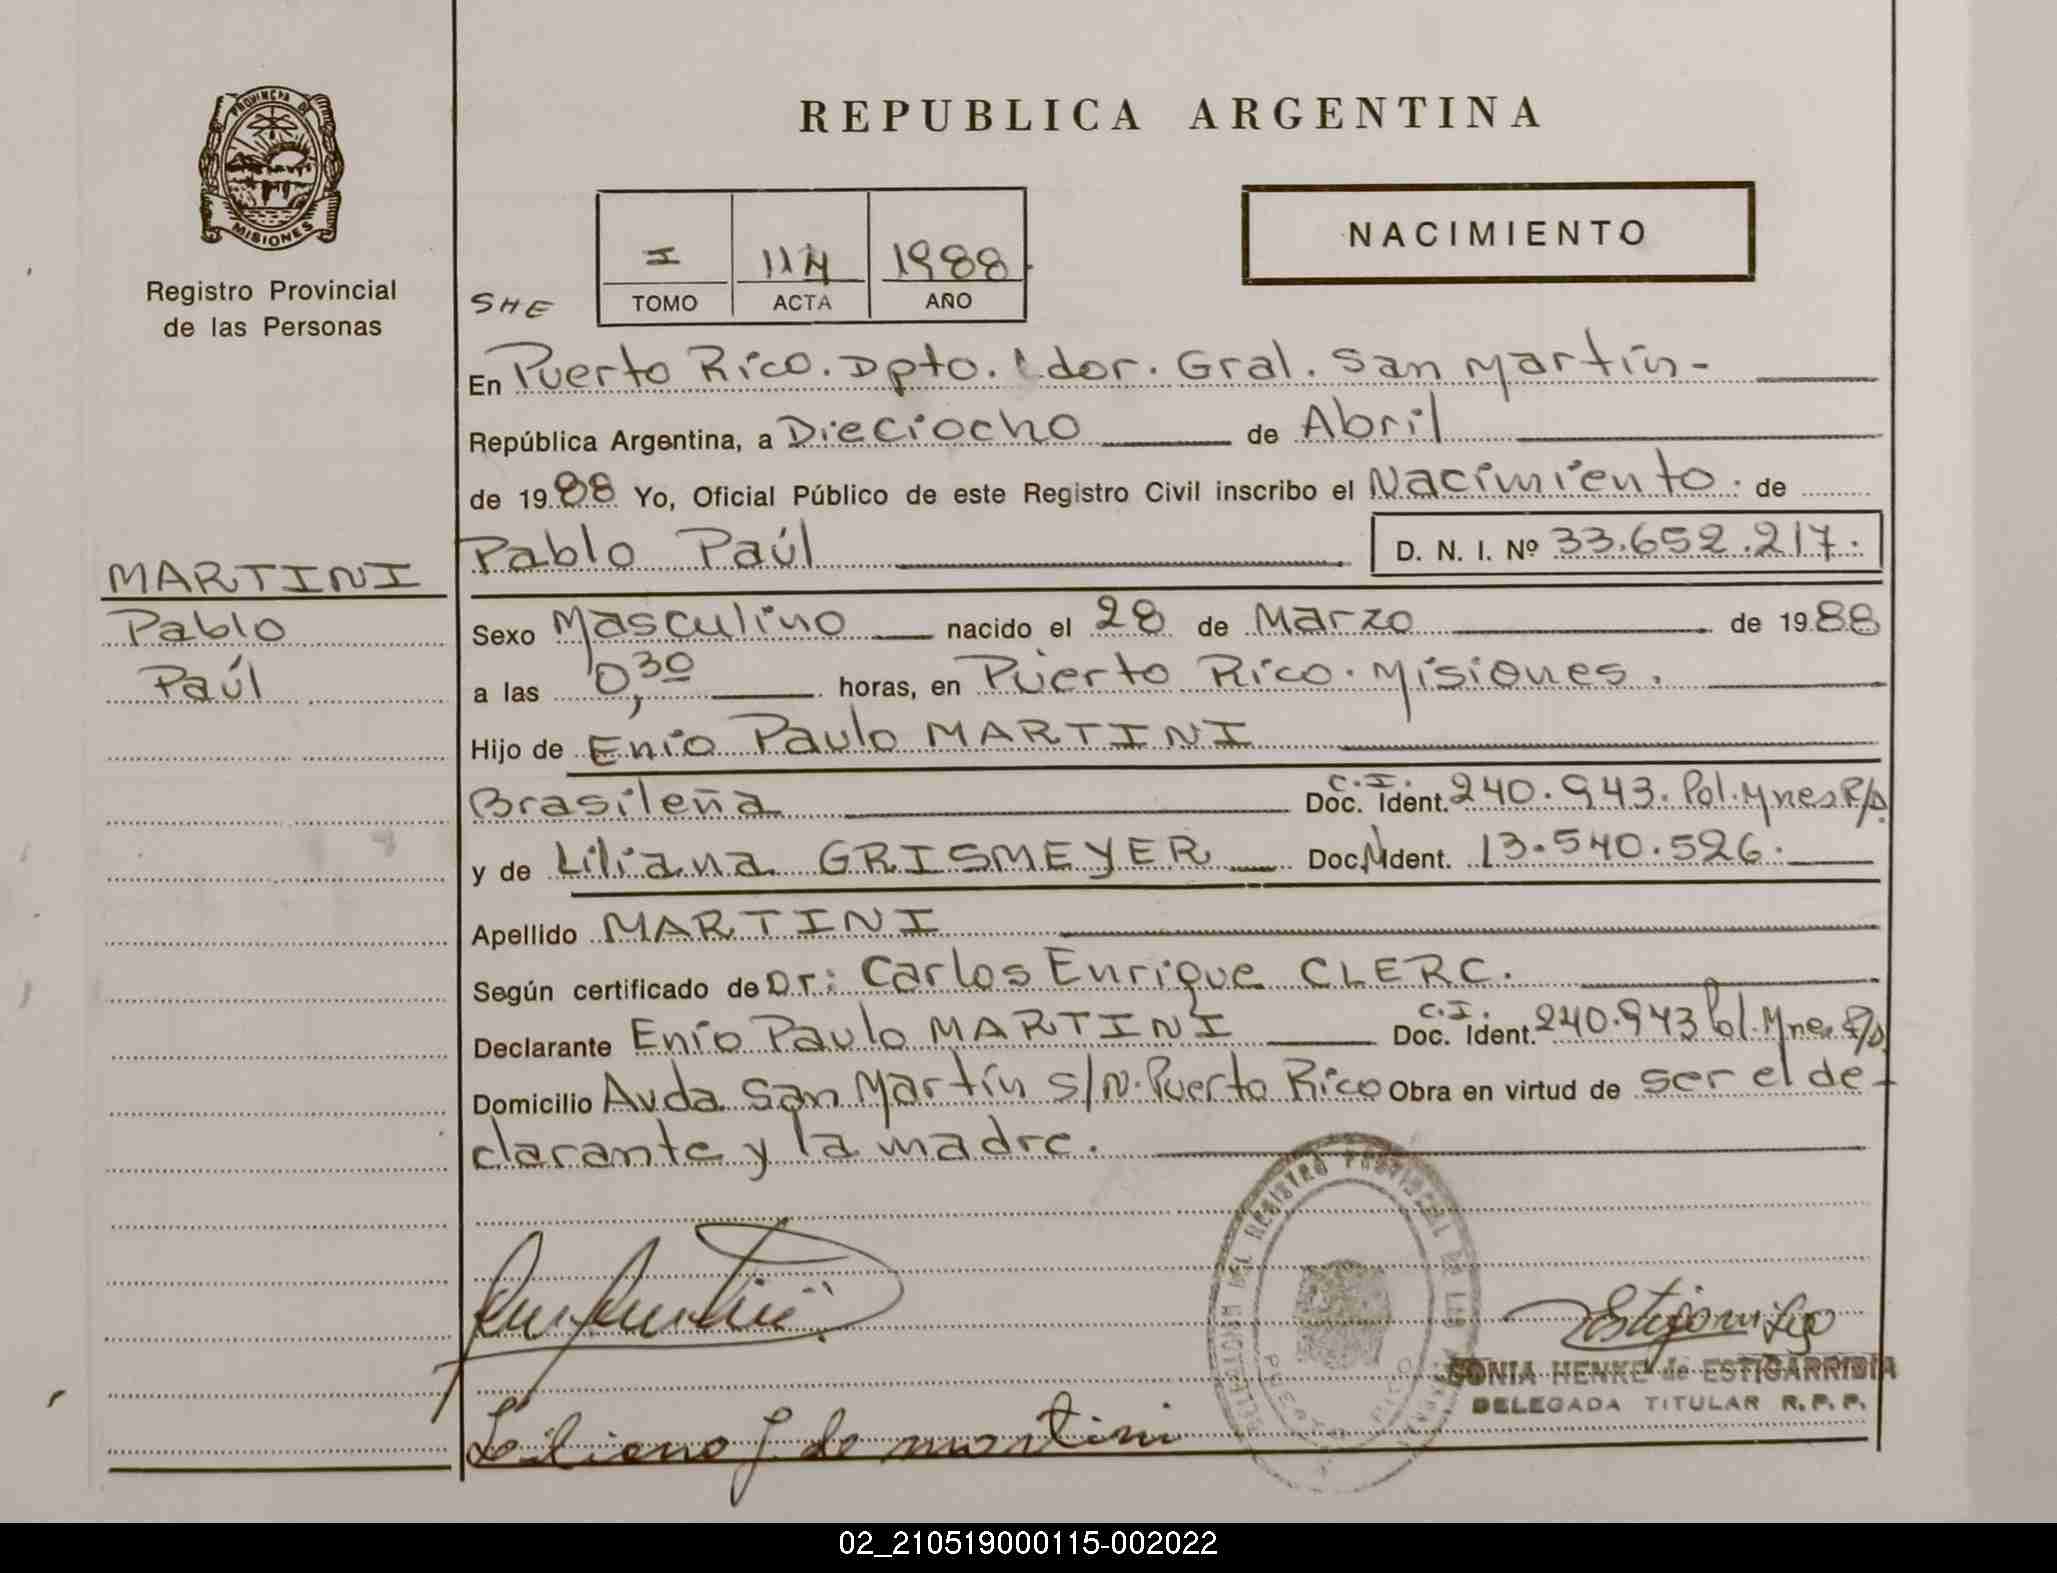 PROVINCIA DE
MISIONES
Registro Provincial
de las Personas
MARTINI
Pablo
Paúl
REPUBLICA ARGENTINA
NACIMIENTO
I 114 1988
TOMO ACTA AÑO
SHE
En Puerto Rico. Dpto. Ldor. Gral. San Martín-
República Argentina, a Dieciocho de Abril
de 1988 Yo, Oficial Público de este Registro Civil inscribo el Nacimiento. de
Pablo Paúl D. N. I. Nº 33.652.217.
Sexo Masculino nacido el 28 de Marzo de 1988
a las 0,30 horas, en Puerto Rico. Misiones.
Hijo de Enio Paulo MARTINI
Brasileña C.I. Doc. Ident. 240.943. Pol. Mnes R/A.
y de Liliana GRISMEYER Doc. N Ident. 13.540.526.
Apellido MARTINI
Según certificado de Dr: Carlos Enrique CLERC.
Declarante Enio Paulo MARTINI C.I. Doc. Ident. 240.943 Pol. Mnes. R/A.
Domicilio Avda San Martín S/N. Puerto Rico Obra en virtud de ser el de-
clarante y la madre.
DELEGACION DEL REGISTRO PROVINCIAL DE LAS
PUERTO RICO
SONIA HENKE de ESTIGARRIBIA
DELEGADA TITULAR R. P. P.
Liliana G. de Martini
02_210519000115-002022